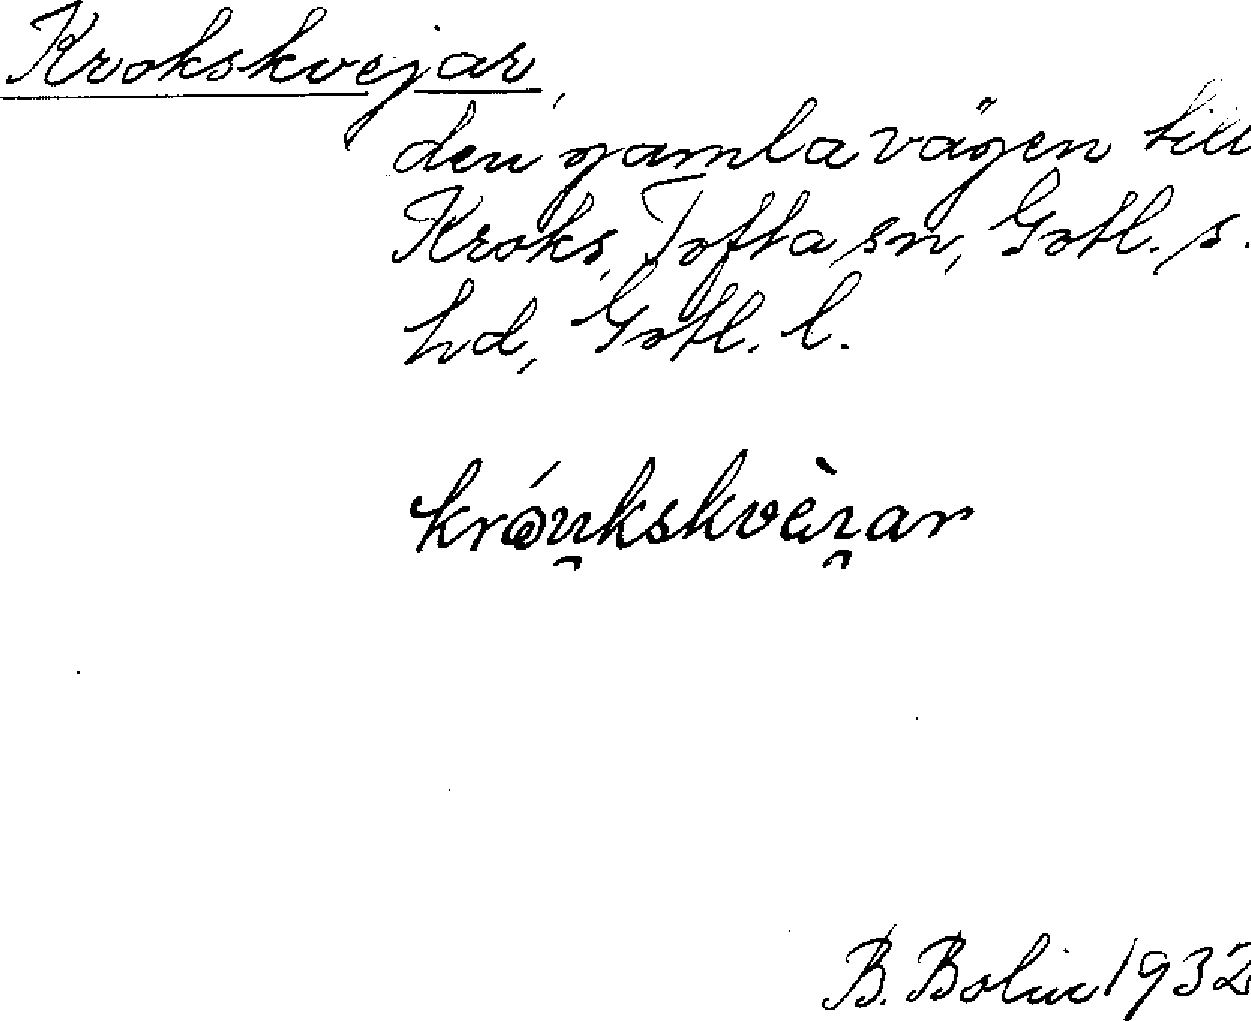 Krokskvejar,
den gamla vägen till
Kroks, Tofta sn, Gotl. s.
hd, Gotl. l.
kró̀u̯kskvèı̯ar
B. Bolin 1932